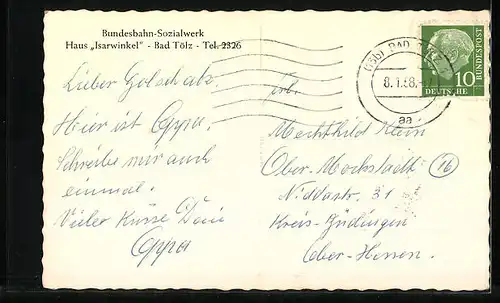 Bundesbahn-Sozialwerk
Haus „Isarwinkel" - Bad Tölz - Tel. 2326
(13b) BAD TÖLZ
8.1.58.
aa
10
DEUTSCHE
BUNDESPOST
Lieber Goldschatz.
Hier ist Oppa.
Schreibe mir auch
einmal.
Vieler Küsse Dein
Oppa
Frl.
Mechthild Klein
Ober-Mockstadt (16)
Niddastr. 31
Kreis-Büdingen
Ober-Hessen.